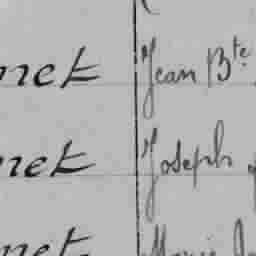 net Jean Bte
net Joseph
net Marie